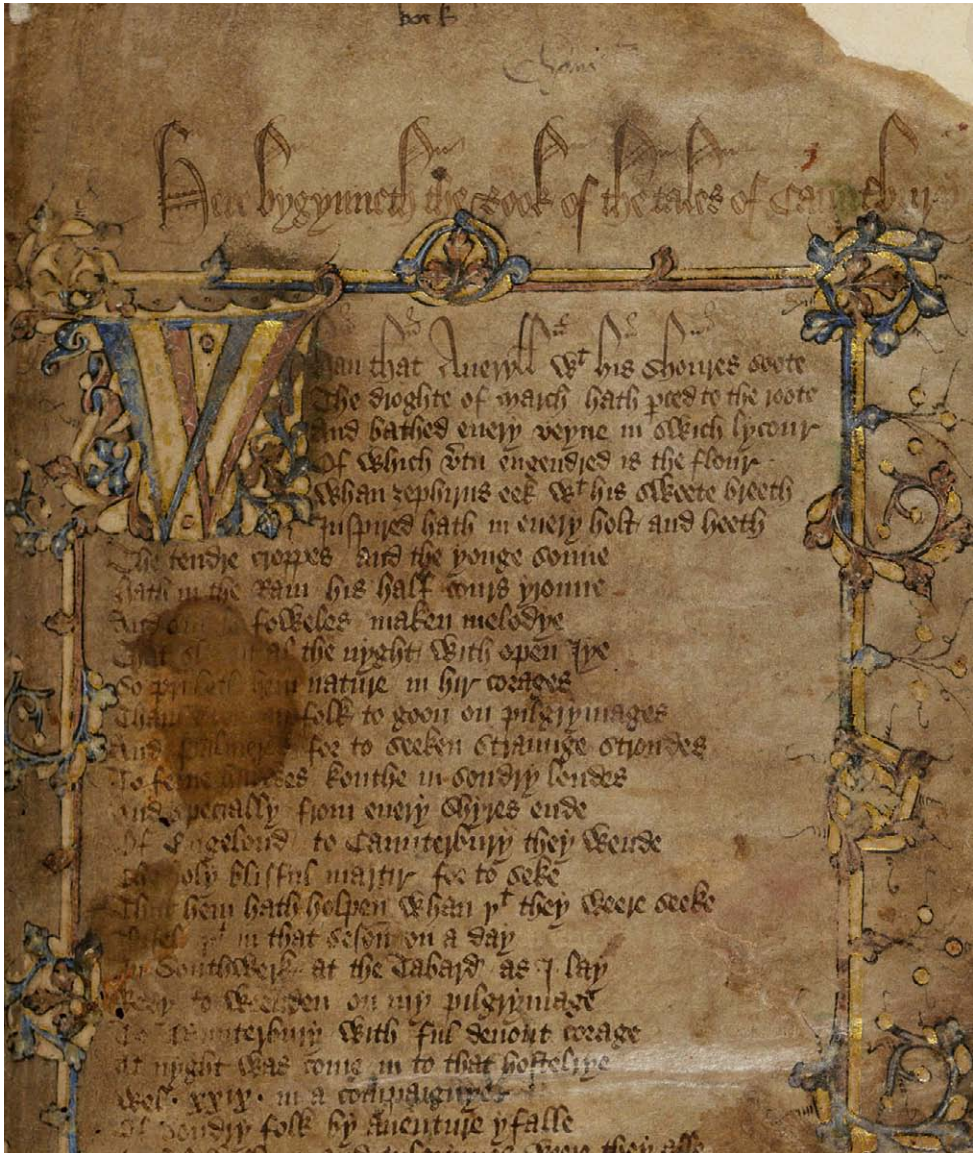 Here bygynneth the Book of the tales of Caunterbury
Whan that Aueryll wt his shoures soote
The droghte of march hath pced to the roote
And bathed euery veyne in swich lycour
Of which vtu engendred is the flour
Whan zephirus eek wt his sweete breeth
Inspired hath in euery holt and heeth
The tendre croppes and the yonge sonne
Hath in the Ram his half cours yronne
And foweles maken melodye
That al the nyght with open Iye
So priketh hem nature in hir corages
folk to goon on pilgrymages
And Palmeres for to seeken straunge strondes
To ferne kouthe in sondry londes
And specially from euery shyres ende
Of Engelond to Caunterbury they wende
The holy blisful martir for to seke
That hem hath holpen whan yt they weere seeke
yt in that seson on a day
In Southwerk at the Tabard as I lay
Redy to weenden on my pilgrymage
To Caunterbury with ful deuout corage
At nyght was come in to that hostelrye
Wel xxix in a compaignye
Of sondry folk by auenture yfalle
were they alle